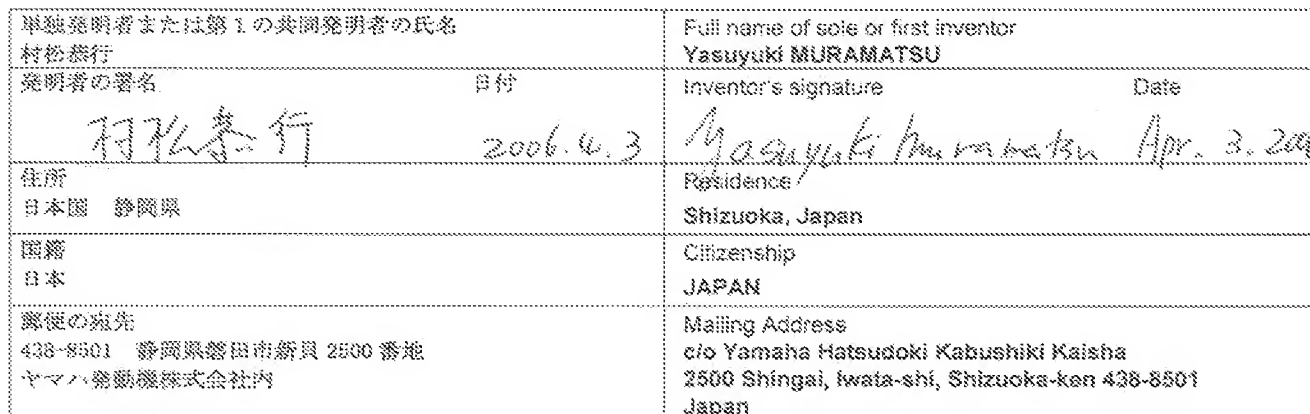 単独発明者または第1の共同発明者の氏名
村松恭行
Full name of sole or first inventor
Yasuyuki MURAMATSU
発明者の署名 日付
村松恭行 2006.4.3
Inventor's signature Date
Yasuyuki Muramatsu Apr. 3. 200
住所
日本国 静岡県
Residence
Shizuoka, Japan
国籍
日本
Citizenship
JAPAN
郵便の宛先
438-8501 静岡県磐田市新貝2500番地
ヤマハ発動機株式会社内
Mailing Address
c/o Yamaha Hatsudoki Kabushiki Kaisha
2500 Shingai, Iwata-shi, Shizuoka-ken 438-8501
Japan